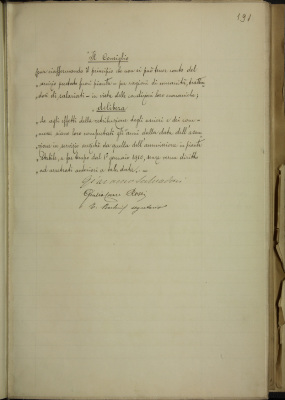 191
Il Consiglio
pur riaffermando il principio che non si può tener conto del
servizio prestato fuori pianta - per ragioni di umanità, trattan
dosi di salariati - in vista delle condizioni loro economiche,
delibera
che agli effetti della retribuzione degli uscieri e dei
siano loro computati gli anni dalla data dell'assun
zione in servizio anziché da quella dell'ammissione in pianta
stabile, e per tempo dal 1° gennaio 1910, senza verun diritto
ad arretrati anteriori a tale data.
Rossi
segretario